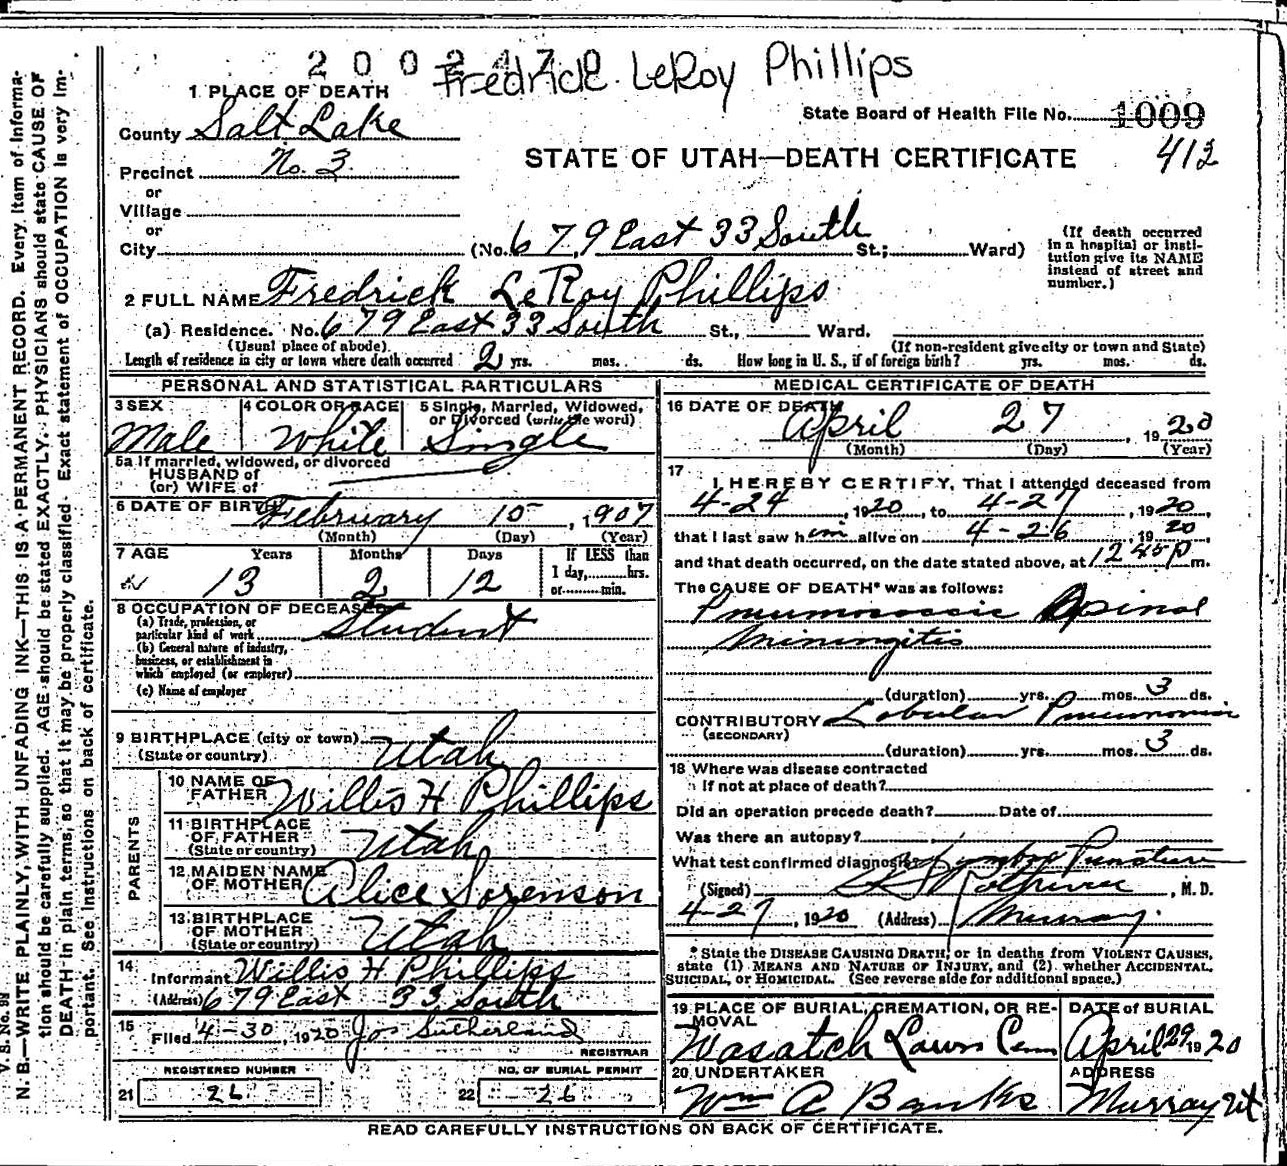 2002470
Fredrick LeRoy Phillips
1 PLACE OF DEATH
County Salt Lake
State Board of Health File No. 1009
412
STATE OF UTAH—DEATH CERTIFICATE
Precinct No. 3.
or
Village
or
City (No. 679 East 33 South St.; Ward)
(If death occurred in a hospital or institution give its NAME instead of street and number.)
2 FULL NAME Fredrick LeRoy Phillips
(a) Residence. No. 679 East 33 South St., Ward.
(Usual place of abode) (If non-resident give city or town and State)
Length of residence in city or town where death occurred 2 yrs. mos. ds. How long in U. S., if of foreign birth? yrs. mos. ds.
PERSONAL AND STATISTICAL PARTICULARS
3 SEX Male
4 COLOR OR RACE White
5 Single, Married, Widowed, or Divorced (write the word) Single
5a If married, widowed, or divorced
HUSBAND of
(or) WIFE of
6 DATE OF BIRTH February 15, 1907
(Month) (Day) (Year)
7 AGE Years Months Days If LESS than
13 2 12 1 day, hrs.
or min.
8 OCCUPATION OF DECEASED
(a) Trade, profession, or particular kind of work Student
(b) General nature of industry, business, or establishment in which employed (or employer)
(c) Name of employer
9 BIRTHPLACE (city or town)
(State or country) Utah
PARENTS
10 NAME OF FATHER Willis H Phillips
11 BIRTHPLACE OF FATHER (State or country) Utah
12 MAIDEN NAME OF MOTHER Alice Sorenson
13 BIRTHPLACE OF MOTHER (State or country) Utah
14 Informant Willis H Phillips
(Address) 679 East 33 South
15 Filed 4-30, 1920 Jos Sutherland
REGISTRAR
REGISTERED NUMBER
21 26
NO. OF BURIAL PERMIT
22 26
MEDICAL CERTIFICATE OF DEATH
16 DATE OF DEATH April 27, 1920
(Month) (Day) (Year)
17 I HEREBY CERTIFY, That I attended deceased from
4-24, 1920, to 4-27, 1920,
that I last saw him alive on 4-26, 1920,
and that death occurred, on the date stated above, at 12 45 P m.
The CAUSE OF DEATH* was as follows:
Pneumococcic Spinal
Miningitis
(duration) yrs. mos. 3 ds.
CONTRIBUTORY Lobular Pneumonia
(SECONDARY)
(duration) yrs. mos. 3 ds.
18 Where was disease contracted
If not at place of death?
Did an operation precede death? Date of
Was there an autopsy?
What test confirmed diagnosis? Lumbar Puncture
(Signed) , M. D.
4-27, 1920 (Address) Murray.
* State the DISEASE CAUSING DEATH, or in deaths from VIOLENT CAUSES,
state (1) MEANS AND NATURE OF INJURY, and (2) whether ACCIDENTAL,
SUICIDAL, or HOMICIDAL. (See reverse side for additional space.)
19 PLACE OF BURIAL, CREMATION, OR REMOVAL
Wasatch Lawn Cem
DATE of BURIAL
April 29 1920
20 UNDERTAKER
Wm A Banks
ADDRESS
Murray Ut
READ CAREFULLY INSTRUCTIONS ON BACK OF CERTIFICATE.
V. S. No. 98
N. B.—WRITE PLAINLY, WITH UNFADING INK—THIS IS A PERMANENT RECORD. Every item of information should be carefully supplied. AGE should be stated EXACTLY. PHYSICIANS should state CAUSE OF DEATH in plain terms, so that it may be properly classified. Exact statement of OCCUPATION is very important. See instructions on back of certificate.